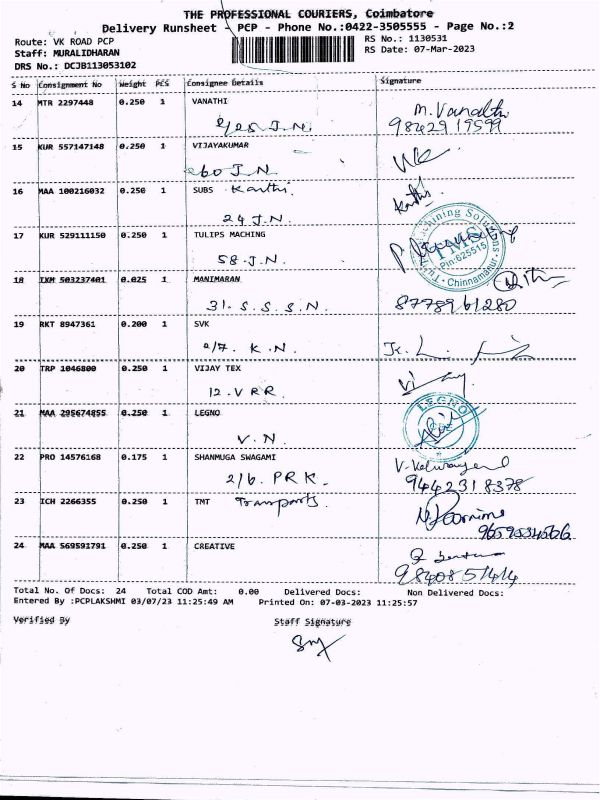 THE PROFESSIONAL COURIERS, Coimbatore
Delivery Runsheet - PCP - Phone No.:0422-3505555 - Page No.:2
Route: VK ROAD PCP
RS No.: 1130531
Staff: MURALIDHARAN
RS Date: 07-Mar-2023
DRS No.: DCJB113053102
S No Consignment No Weight PCS Consignee Details Signature
14 MTR 2297448 0.250 1 VANATHI
M. Vanathi
2/25 J.N.
9842919599
15 KUR 557147148 0.250 1 VIJAYAKUMAR
260 J.N.
16 MAA 100216032 0.250 1 SUBS Karthi.
24 J.N.
17 KUR 529111150 0.250 1 TULIPS MACHING
58 J.N.
Machining Solutions
TMS
Pin-625515
Chinnamanur
18 IXM 503237401 0.025 1 MANIMARAN
31. S.S.S.N.
8778961280
19 RKT 8947361 0.200 1 SVK
2/7. K.N.
20 TRP 1046800 0.250 1 VIJAY TEX
12. V R R.
21 MAA 295674855 0.250 1 LEGNO
LEGNO
V.N.
22 PRO 14576168 0.175 1 SHANMUGA SWAGAMI
2/6. PRK.
9442318378
23 ICH 2266355 0.250 1 TMT Transports.
24 MAA 569591791 0.250 1 CREATIVE
9840851414
Total No. Of Docs: 24 Total COD Amt: 0.00 Delivered Docs: Non Delivered Docs:
Entered By :PCPLAKSHMI 03/07/23 11:25:49 AM Printed On: 07-03-2023 11:25:57
Verified By Staff Signature